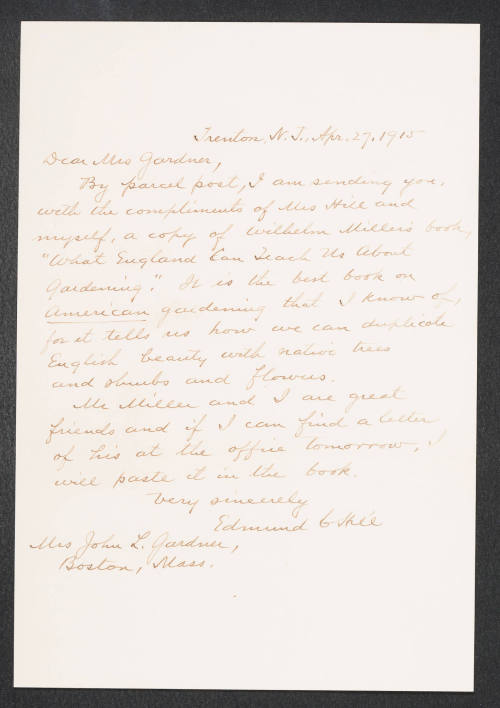 Trenton, N. J., Apr. 27, 1915
Dear Mrs Gardner,
By parcel post, I am sending you,
with the compliments of Mrs Hill and
myself, a copy of Wilhelm Miller's book,
"What England Can Teach Us About
Gardening." It is the best book on
American gardening that I know of,
for it tells us how we can duplicate
English beauty with native trees
and shrubs and flowers.
Mr Miller and I are great
friends and if I can find a letter
of his at the office tomorrow, I
will paste it in the book.
Very sincerely
Edmund C Hill
Mrs John L. Gardner,
Boston, Mass.